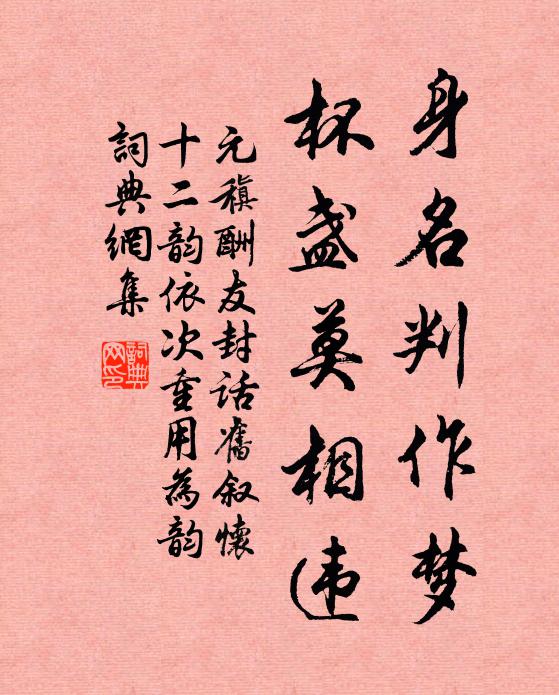 身名判作梦
杯盏莫相违
元稹酬友封话旧叙懷
十二韵依次重用為韵
詞典網集
詞典
网印